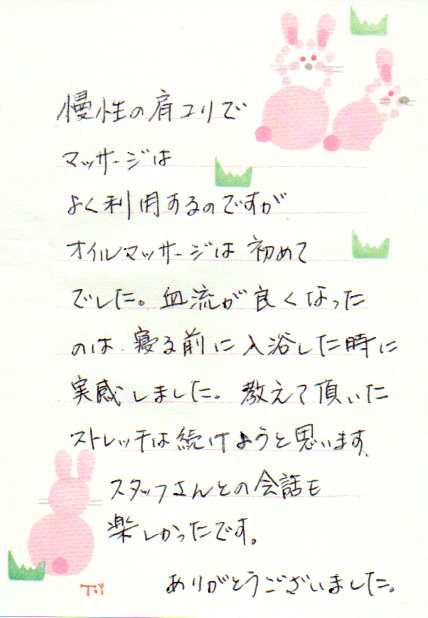 慢性の肩コリで
マッサージは
よく利用するのですが
オイルマッサージは初めて
でした。血流が良くなった
のは、寝る前に入浴した時に
実感しました。教えて頂いた
ストレッチは続けようと思います、
スタッフさんとの会話も
楽しかったです。
ありがとうございました。